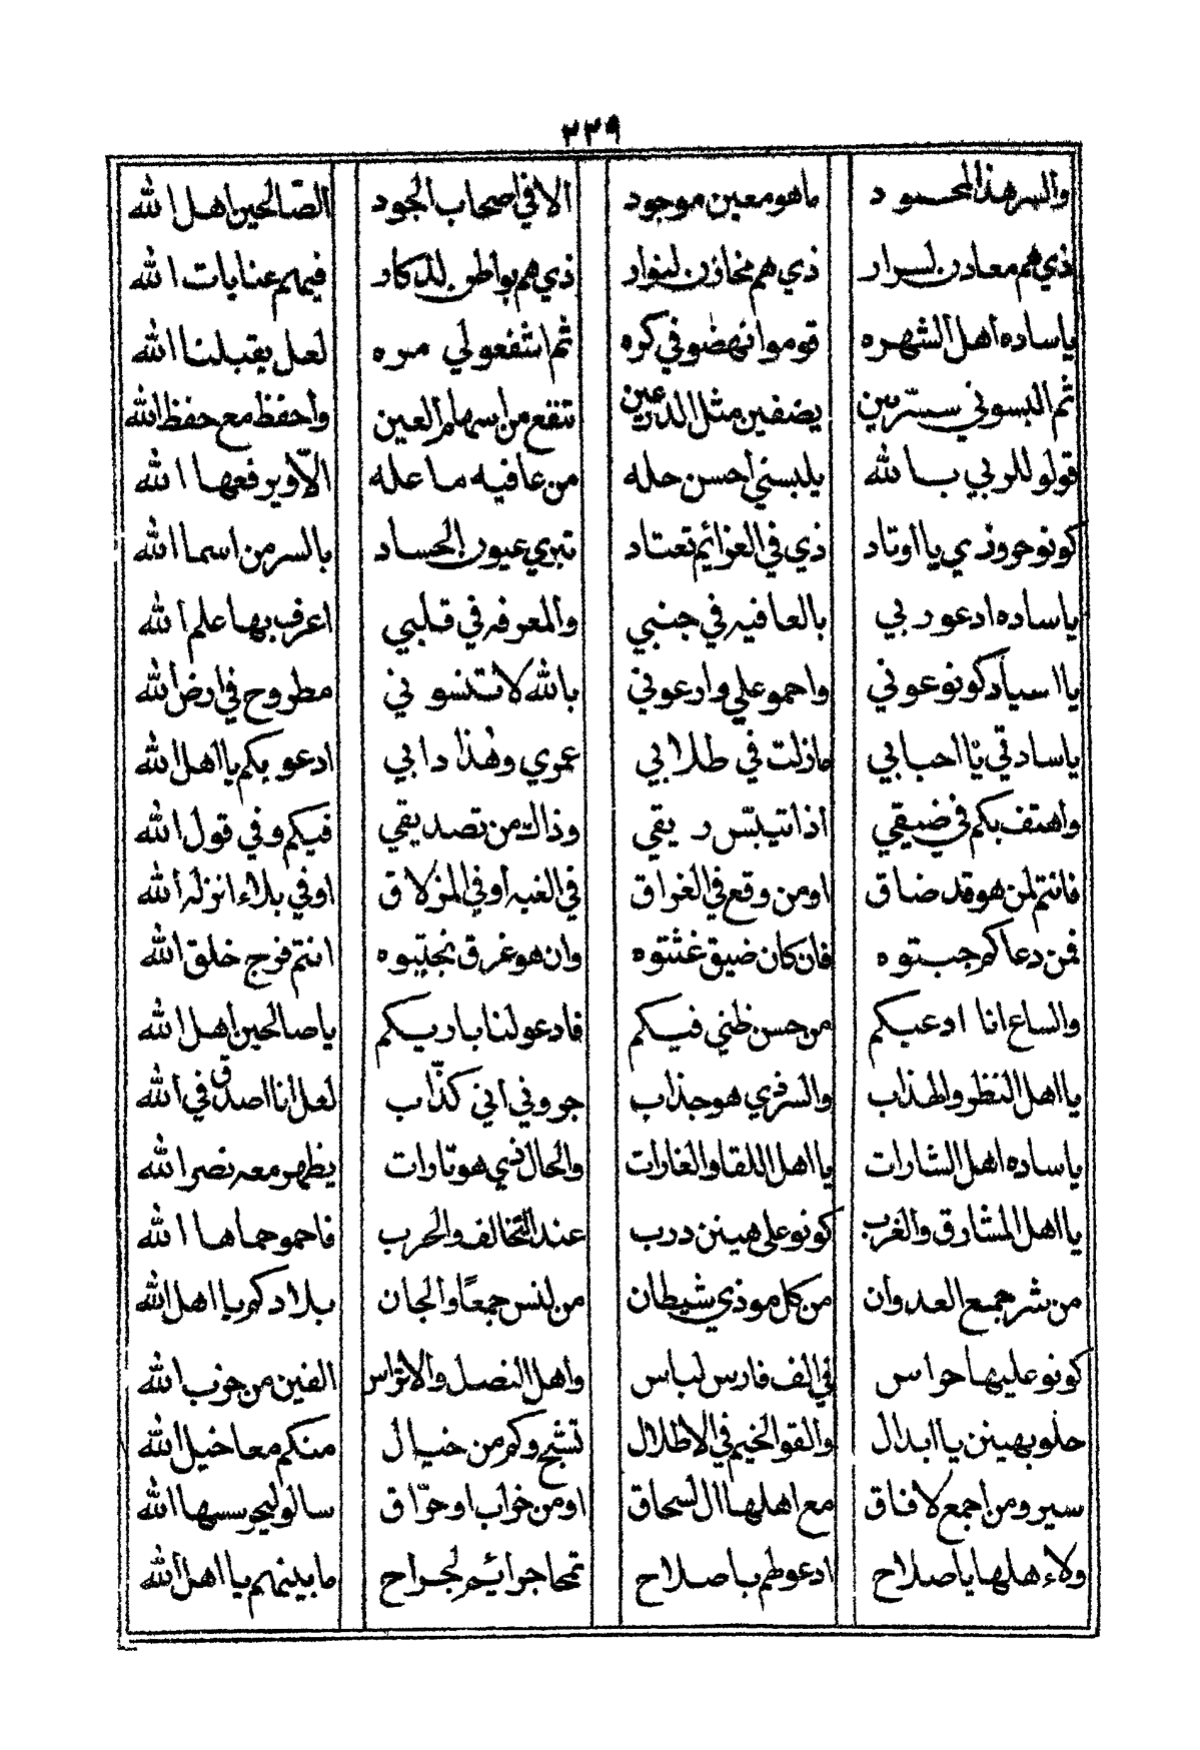 ٢٣٩
والسر هذا المحسود ماهو معين موجود الا في اصحاب الجود الصّالحين اهل الله
ذي هم معادن لسرار ذي هم مخازن لنوار ذي هم بواطن للذكار فيهم عنايات الله
ياساده اهل الشهره قوموا انهضو في كره ثم اشفعولي مره لعل يقبلنا الله
ثم البسوني سترين يضفين مثل الدرعين تنقع من أسهام العين واحفظ مع حفظ الله
قولو للربي بالله يلبسني أحسن حله من عافيه ما عله الاّ ويرفعها الله
كونو حروزي يا اوتاد ذي في العزائيم تعتاد تبري عيون الحساد بالسر من اسما الله
ياساده ادعو ربي بالعافيه في جنبي والمعرفه في قلبي اعرف بها علم الله
يا اسياد كونو عوني واحمو علي وادعوني بالله لا تنسوني مطروح في ارض الله
ياسادتي يا احبابي مازلت في طلابي عمري وهذا دابي ادعو بكم يا اهل الله
واهتف بكم في ضيقي أذا تيبّس ريقي وذاك من تصديقي فيكم وفي قول الله
فانتم لمن هو قد ضاق او من وقع في الغراق في الغبه أو في المزلاق او في بلاء انزله الله
فمن دعاكم جبتوه فان كان ضيق غثتوه وان هو غرق نجيتبوه انتم فرج خلق الله
والساع انا ادعيكم من حسن ظني فيكم فادعو لنا باريكم ياصالحين أهل الله
يا اهل النظر والهذاب والسر ذي هو جذاب جروني اني كذّاب لعل انا اصدق في الله
ياساده اهل الشارات يا اهل اللقا والغارات والحال ذي هو تارات يظهر معه نصر الله
يا اهل المشارق والغرب كونو على هينن درب عند التخالف والحرب فاحمو حماها الله
من شر جمع العدوان من كل موذي شيطان من لنس جمعًا والجان بلادكم يا اهل الله
كونو عليها حواس في الف فارس لباس واهل النصل والاتراس الفين من حزب الله
حلو بهينن يا ابدال والقو الخيم في الاطلال تشبح وكم من خيال منكم معا خيل الله
سيرو من اجمع لافاق مع اهلها ال اسحاق او من خراب او حرّاق سالو ليحرسها الله
ولاء هلها ياصلاح ادعو لهم باصلاح تمحا جرائيم لجراح مابينهم يا اهل الله